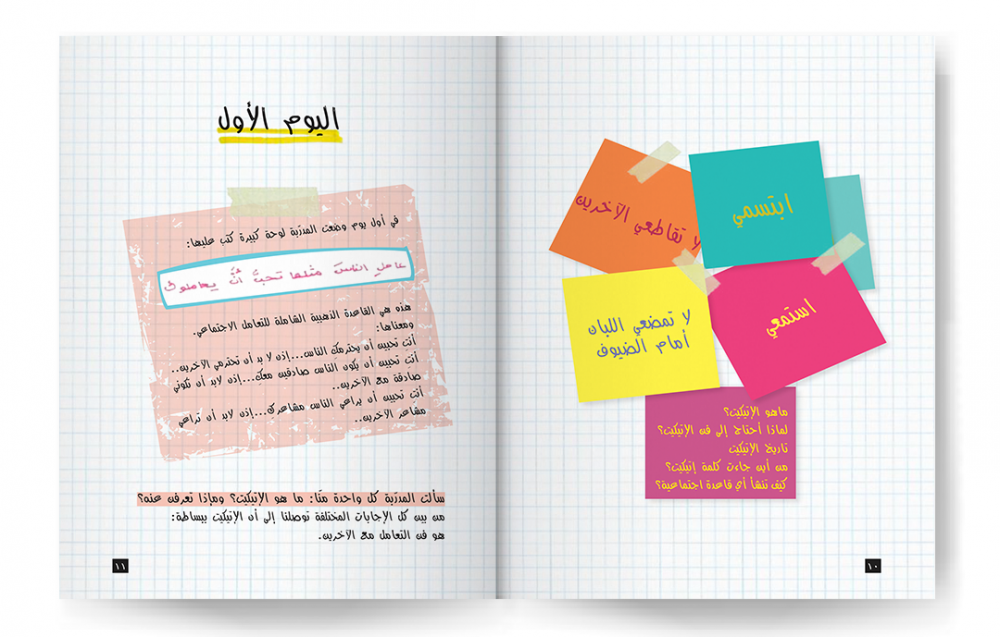 ابتسمي
لا تقاطعي الآخرين
استمعي
لا تمضغي اللبان
أمام الضيوف
ماهو الإتيكيت؟
لماذا أحتاج إلى فن الإتيكيت؟
تاريخ الإتيكيت
من أين جاءت كلمة إتيكيت؟
كيف تنشأ أي قاعدة اجتماعية؟
١٠
اليوم الأول
في أول يوم وضعت المدرّبة لوحة كبيرة كتب عليها:
عامل الناسَ مثلما تحبُّ أنْ يعاملوك
هذه هي القاعدة الذهبية الشاملة للتعامل الاجتماعي.
ومعناها:
أنتِ تحبين أن يحترمكِ الناس...إذن لا بد أن تحترمي الآخرين..
أنتِ تحبين أن يكون الناس صادقين معكِ...إذن لابد أن تكوني
صادقة مع الآخرين..
أنتِ تحبين أن يراعي الناس مشاعركِ...إذن لابد أن تراعي
مشاعر الآخرين..
سألت المدرّبة كل واحدة منّا: ما هو الإتيكيت؟ وماذا تعرفن عنه؟
من بين كل الإجابات المختلفة توصلنا إلى أن الإتيكيت ببساطة:
هو فن التعامل مع الآخرين.
١١